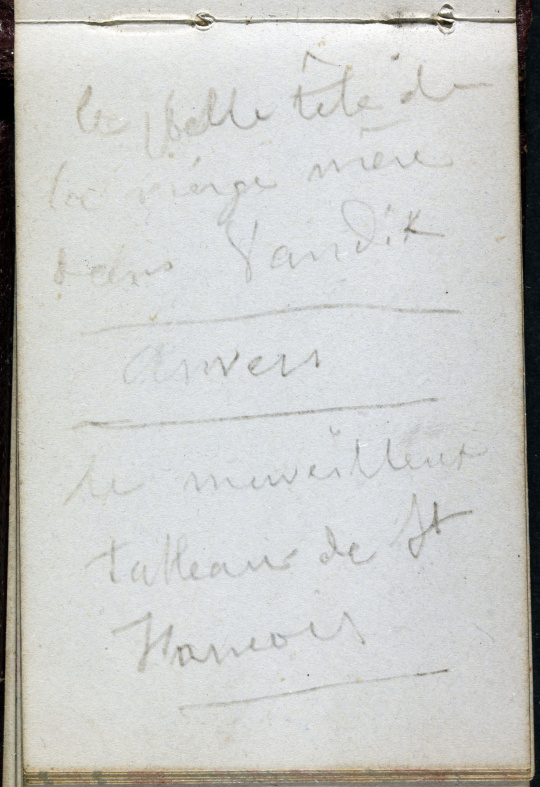 la belle tête de
la vierge mère
dans Vandik
Anvers
le merveilleux
tableau de St
Francois